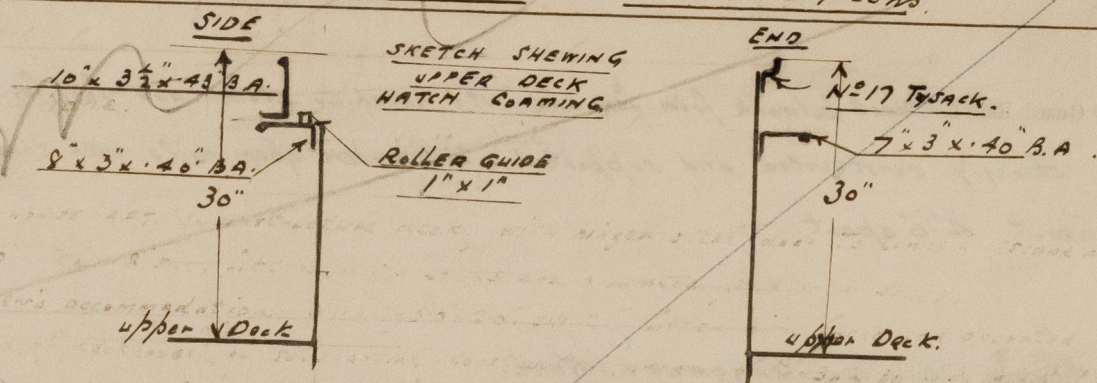 SIDE
10" x 3½" x ·43" B.A.
8" x 3" x ·40" B.A.
30"
upper Deck
SKETCH SHEWING
UPPER DECK
HATCH COAMING
ROLLER GUIDE
1" x 1"
END
No 17 TYSACK.
7" x 3" x ·40" B.A.
30"
upper Deck.